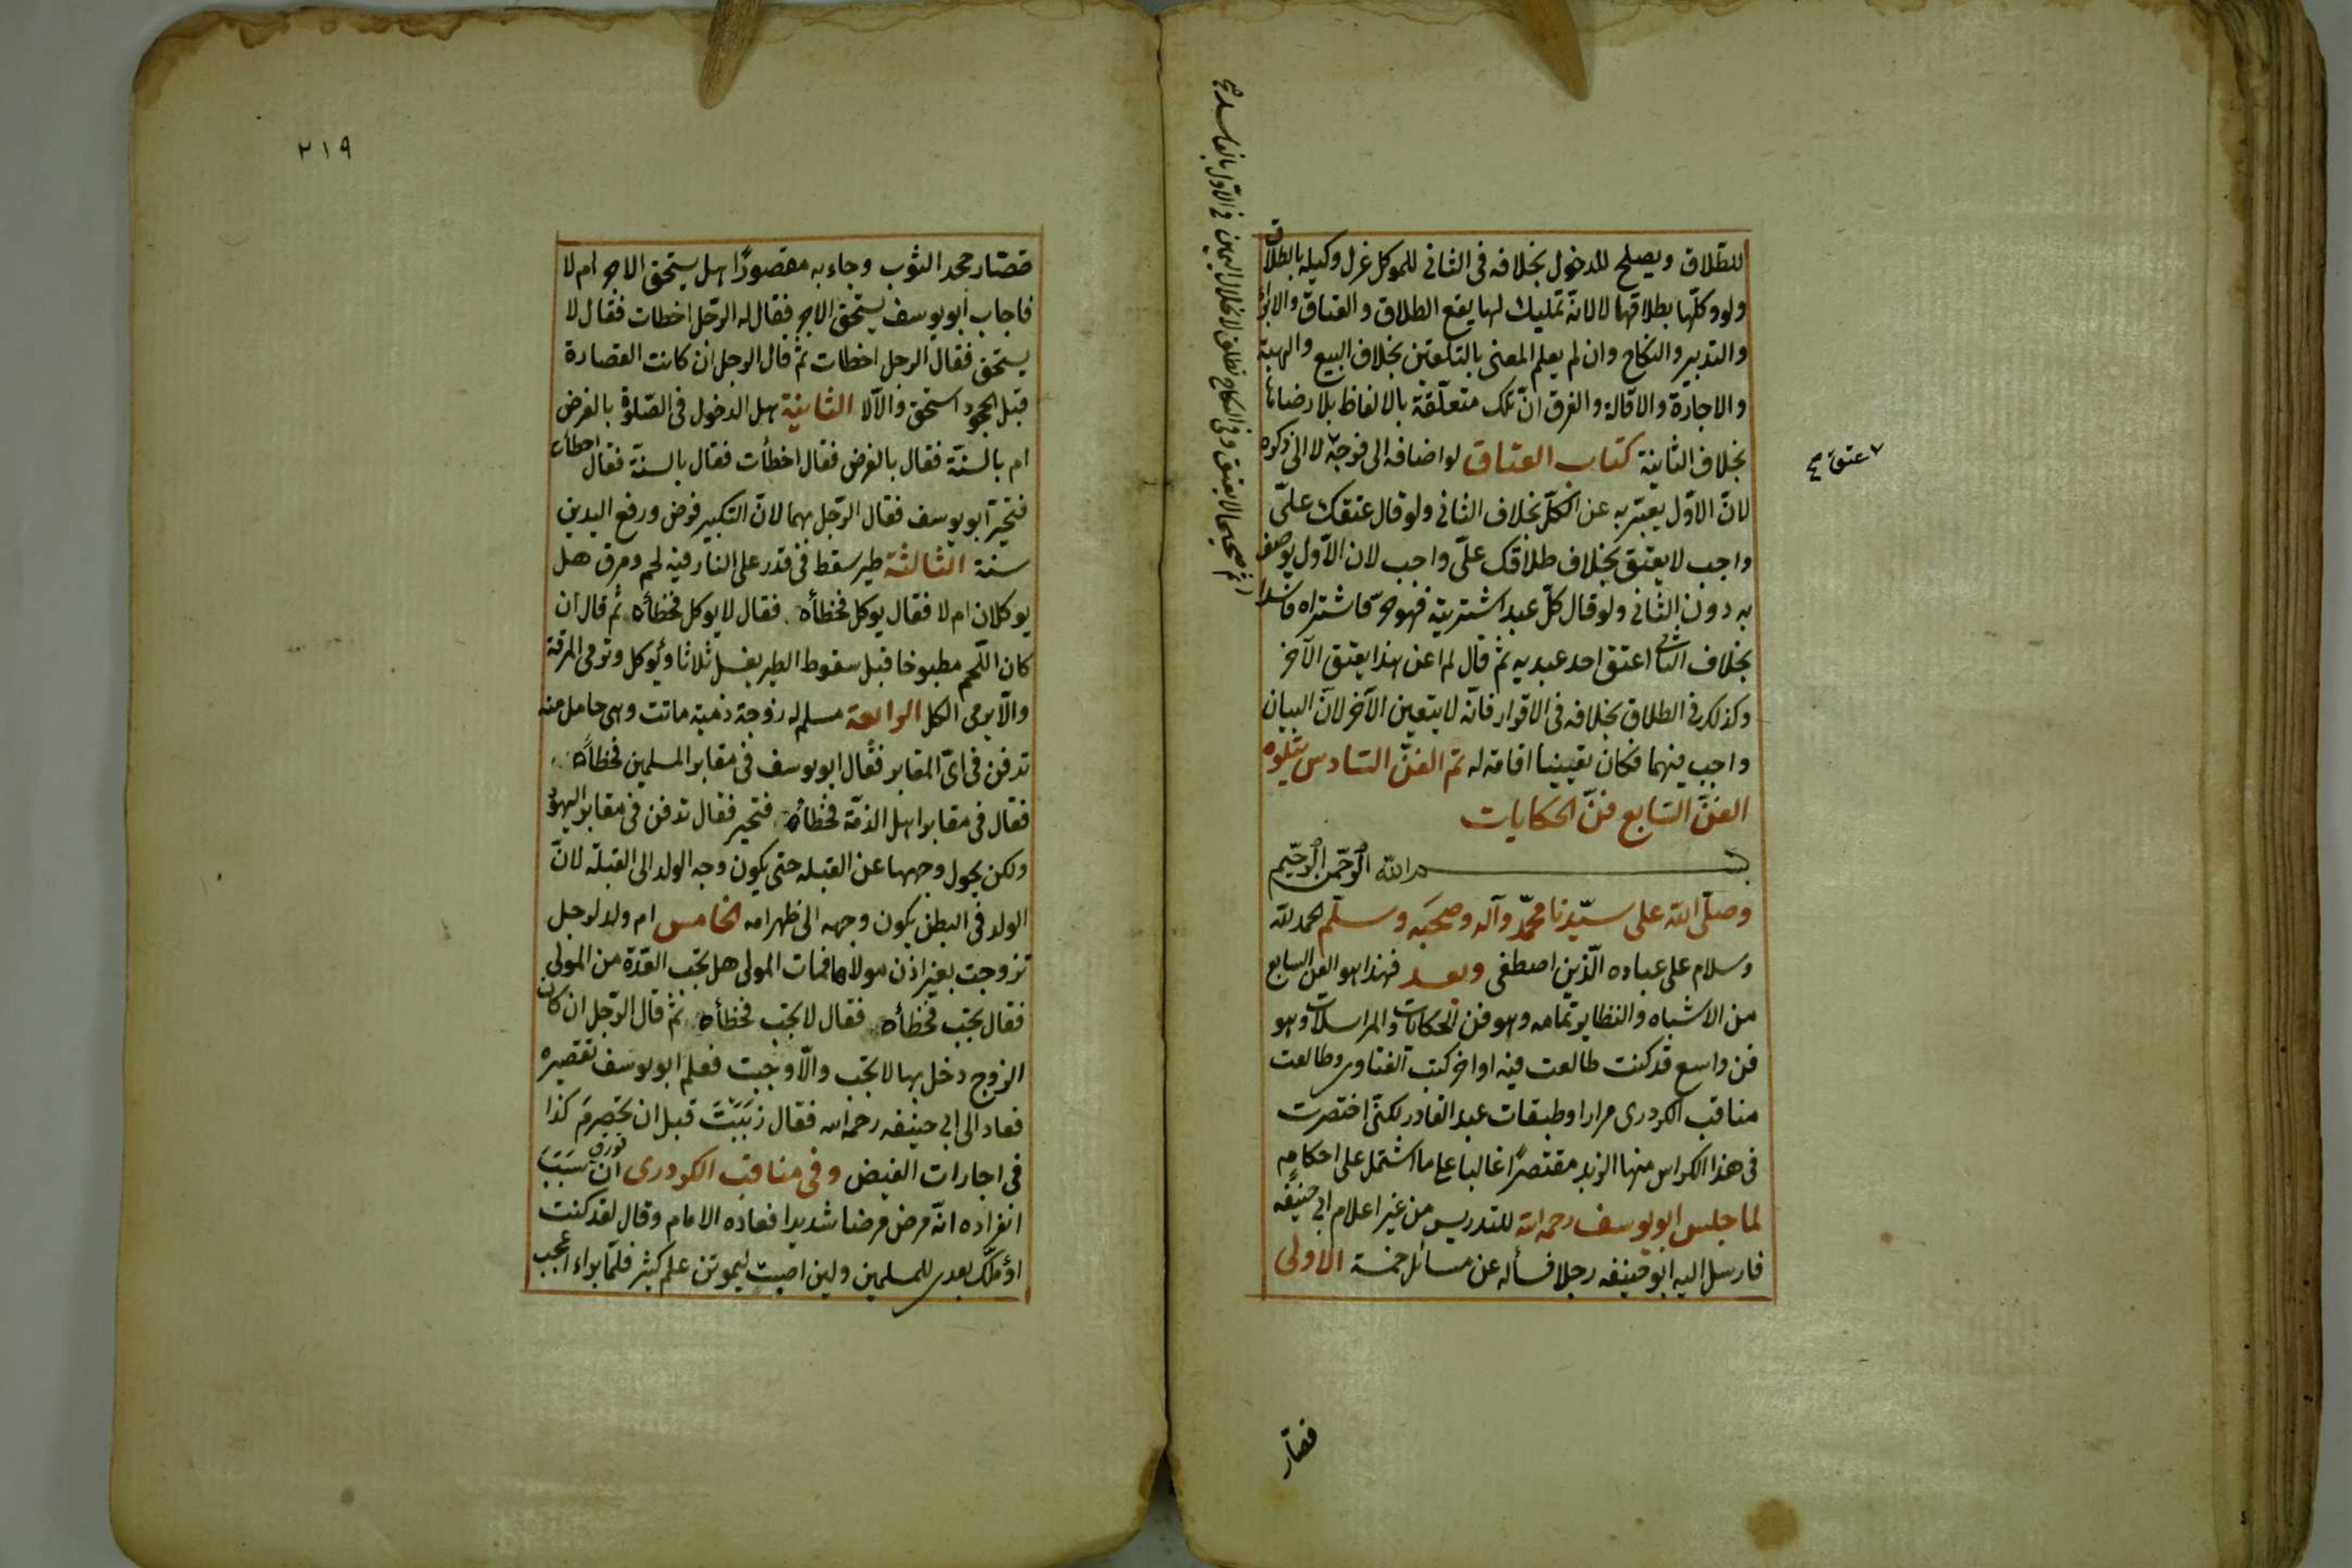 للطلاق ويصلح للدخول بخلافه فى الثانى للموكل عزل وكيله بالطلاق
ولو وكلها بطلاقها لا لانه تمليك لها يقع الطلاق والعتاق والابراء
والتدبير والنكاح وان لم يعلم المعنى بالتلقين بخلاف البيع والهبة
والاجارة والاقالة والفرق انّ تلك متعلّقة بالالفاظ بلا رضا
بخلاف الثانية كتاب العتاق لو اضافه الى فرجه لا الى ذكره
لانّ الاوّل يعبّر به عن الكلّ بخلاف الثانى ولو قال عتقك علىّ
واجب لا يعتق بخلاف طلاقك علىّ واجب لان الاوّل يوصف
به دون الثانى ولو قال كلّ عبد اشتريته فهو حرّ فاشتراه فاسدا
بخلاف النكاح اعتق احد عبديه ثمّ قال لم اعن هذا يعتق الآخر
وكذلك فى الطلاق بخلافه فى الاقرار فانّه لا يتعين الآخر لانّ البيان
واجب فيهما فكان تعيينا اقامة له تم الفنّ السّادس يتلوه
الفنّ السّابع فنّ الحكايات
بسم الله الرّحمن الرّحيم
وصلّى الله على سيّدنا محمّد وآله وصحبه وسلّم الحمد لله
وسلام على عباده الّذين اصطفى وبعد فهذا هو الفن السابع
من الاشباه والنظاير وبتمامه وهو فن الحكايات والمراسلات وهو
فن واسع قد كنت طالعت فيه اواخر كتب الفتاوى وطالعت
مناقب الكردرى مرارا وطبقات عبد القادر لكنّى اختصرت
فى هذا الكراس منها الزبد مقتصرًا غالبا على ما اشتمل على احكام
لما جلس ابو يوسف رحمه الله للتدريس من غير اعلام ابى حنيفه
فارسل اليه ابو حنيفه رجلا فسأله عن مسائل خمسة الاولى
قصّار
عتق صح
ثم صحيحا لا يعتق وفى النكاح تطلق لانحلال اليمين فى الاول بالفاسد صح
٢١٩
قصّار جحد الثوب وجاء به مقصورًا هل يستحق الاجر ام لا
فاجاب ابو يوسف يستحق الاجر فقال له الرّجل اخطات فقال لا
يستحق فقال الرجل اخطات ثمّ قال الرجل ان كانت القصارة
قبل الجحود استحق والّا لا الثانية هل الدخول فى الصّلوة بالفرض
ام بالسنّة فقال بالفرض فقال اخطأت فقال بالسنّة فقال اخطأت
فتحيّر ابو يوسف فقال الرّجل بهما لانّ التكبير فرض ورفع اليدين
سنة الثالثة طير سقط فى قدر على النار فيه لحم ومرق هل
يوكلان ام لا فقال يوكل فخطأه فقال لا يوكل فخطأه ثمّ قال ان
كان اللّحم مطبوخا قبل سقوط الطير يغسل ثلاثا ويوكل وترمى المرقة
والّا يرمى الكل الرابعة مسلم له زوجة ذمّية ماتت وهى حامل منه
تدفن فى اىّ المقابر فقال ابو يوسف فى مقابر المسلمين فخطأه
فقال فى مقابر اهل الذمّة فخطأه فتحير فقال تدفن فى مقابر اليهود
ولكن يحول وجهها عن القبله حتى يكون وجه الولد الى القبلة لانّ
الولد فى البطن يكون وجهه الى ظهر امه الخامس ام ولد لرجل
تزوجت بغير اذن مولاها فمات المولى هل تجب العدّة من المولى
فقال تجب فخطأه فقال لا تجب فخطأه ثمّ قال الرّجل ان كان
الزوج دخل بها لا تجب والّا وجبت فعلم ابو يوسف تقصيره
فعاد الى ابى حنيفه رحمه الله فقال زبّبت قبل ان تحصرم كذا
فى اجارات الفيض وفى مناقب الكردرى ان سبب
انفراده انّه مرض مرضا شديدا فعاده الامام وقال لقد كنت
اؤمّلك بعدى للمسلمين ولين اصبت ليموتن علم كثير فلمّا برا اعجب